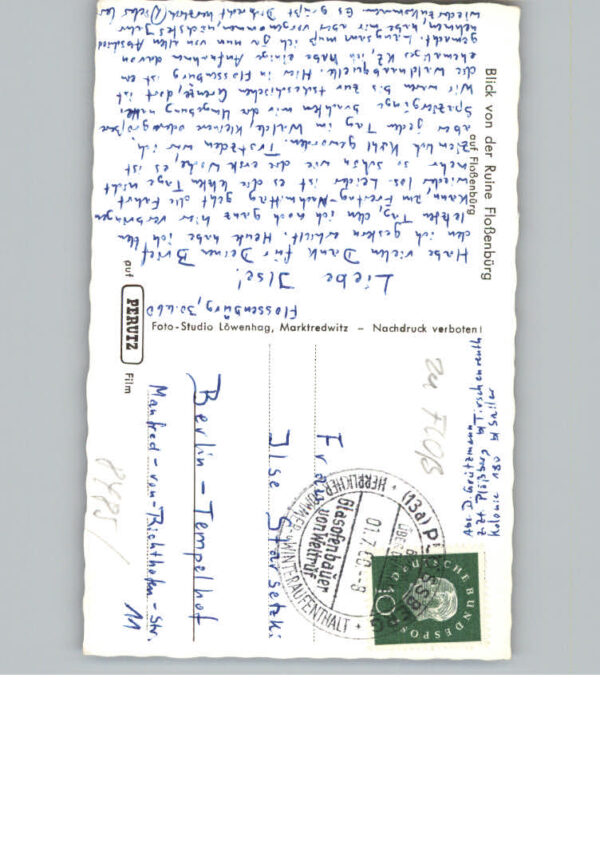 Blick von der Ruine Floßenbürg
auf Floßenbürg
Flossenbürg, 30.6.60
Liebe Ilse!
Habe vielen Dank für Deinen Brief
den ich gestern erhielt. Heute habe ich den
letzten Tag, den ich noch ganz hier verbringen
kann, am Freitag-Nachmittag geht die Fahrt
wieder los. Leider ist es die letzten Tage nicht
mehr so schön wie die erste Woche, es ist
ziemlich kühl geworden. Trotzdem war ich
aber jeden Tag im Walde, kleine oder größere
Spaziergänge machten wir der Umgebung
Wir waren bis zur tschechischen Grenze, dort ist
die Waldnaabquelle. Hier in Flossenbürg ist ein
ehemaliges KZ, ich habe einige Aufnahmen davon
gemacht. Langsam muß ich ja nun von allem Abschied
nehmen, habe mir aber vorgenommen, nächstes Jahr
wiederzukommen. Es grüßt Dich recht herzlich
Foto-Studio Löwenhag, Marktredwitz – Nachdruck verboten!
auf PERUTZ Film
Abs. D. Grützmann
z.Zt. Plößberg b/Tirschenreuth
Kolonie 180 b/Sailer
zu FlOß
8485/
(13a) PLÖSSBERG
01.7.60–8
Glasofenbauer
von Weltruf
HERRLICHER SOMMER- u. WINTERAUFENTHALT
DEUTSCHE BUNDESPOST
10
Frau
Ilse Starsetzki
Berlin – Tempelhof
Manfred-von-Richthofen-Str.
11